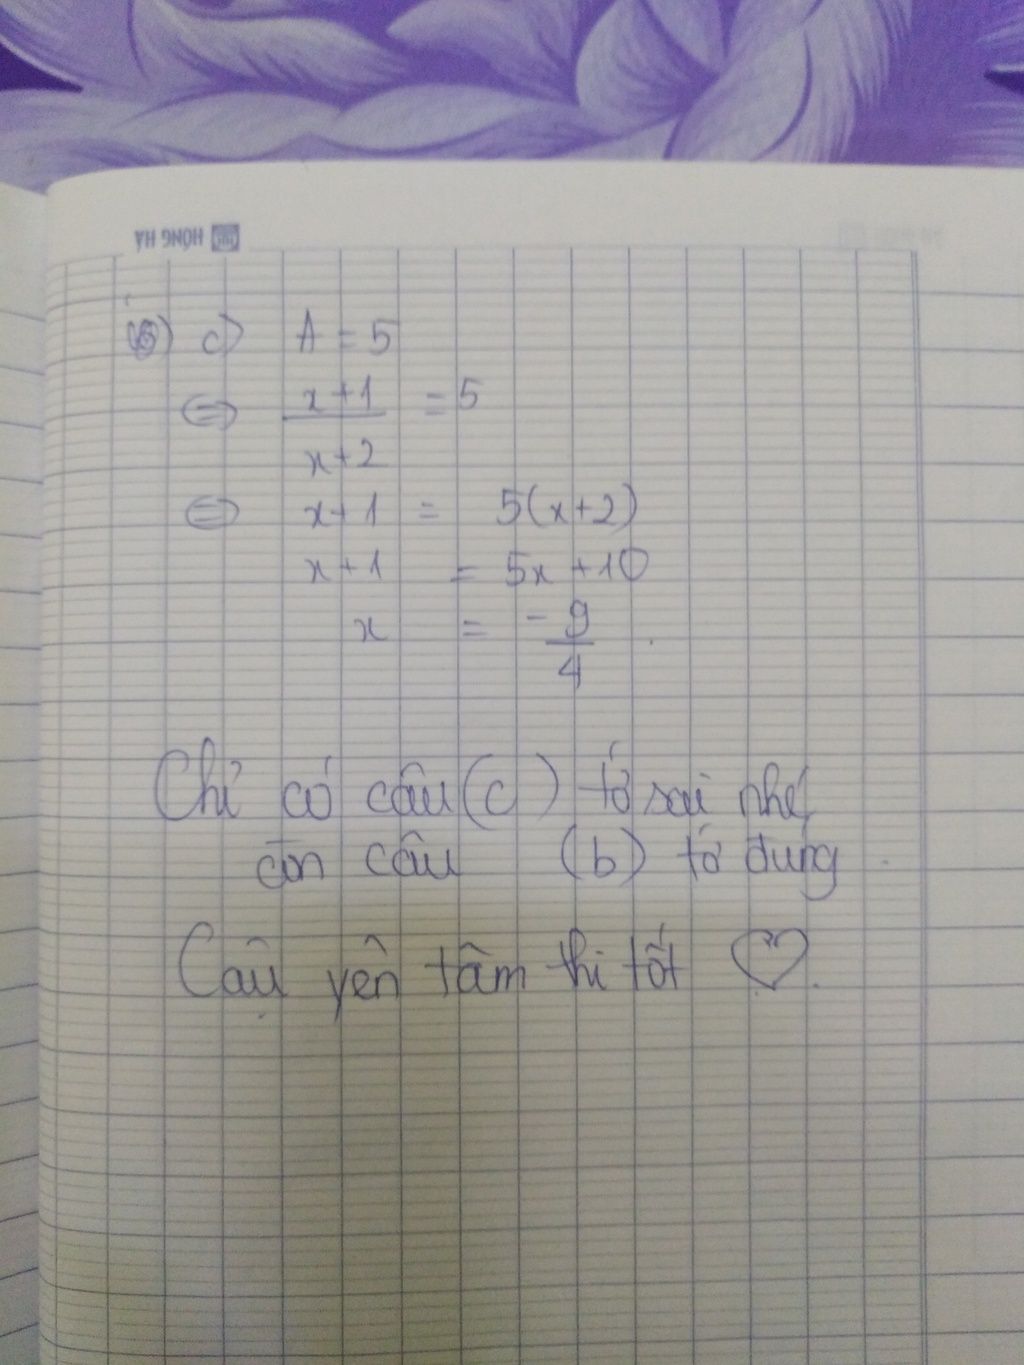 HỒNG HÀ
c) A = 5
⇔ x+1 = 5
x+2
⇔ x+1 = 5(x+2)
x+1 = 5x +10
x = -9
4
Chỉ có câu (c) tớ sai nhé,
còn câu (b) tớ đúng
Cậu yên tâm thi tốt ♡.